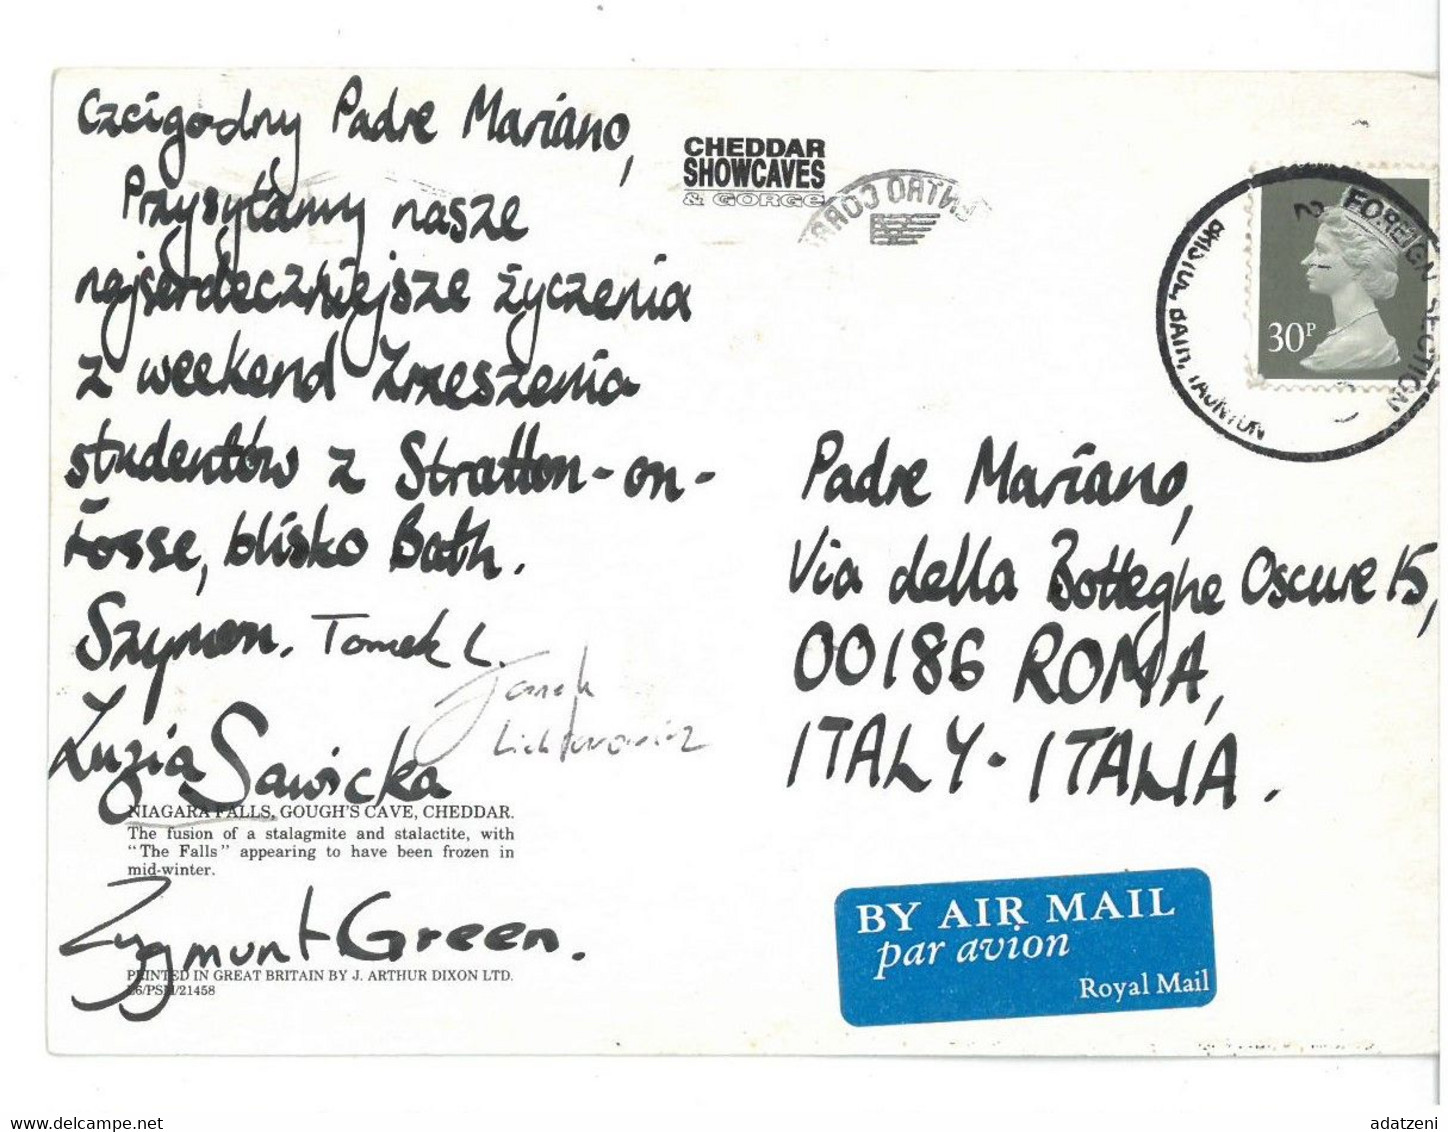 Czcigodny Padre Mariano,
Przysyłamy nasze
najserdeczniejsze życzenia
z weekend Zrzeszenia
studentów z Stratton-on-
Fosse, blisko Bath.
Szymon. Tomek L.
Janek
Zuzia Sawicka
NIAGARA FALLS, GOUGH'S CAVE, CHEDDAR.
The fusion of a stalagmite and stalactite, with
"The Falls" appearing to have been frozen in
mid-winter.
Zygmunt Green.
PRINTED IN GREAT BRITAIN BY J. ARTHUR DIXON LTD.
/21458
CHEDDAR
SHOWCAVES
& GORGE
FOREIGN SECTION
BRISTOL, BATH, TAUNTON
30P
Padre Mariano,
Via della Botteghe Oscure 15,
00186 ROMA,
ITALY - ITALIA.
BY AIR MAIL
par avion
Royal Mail
adatzeni